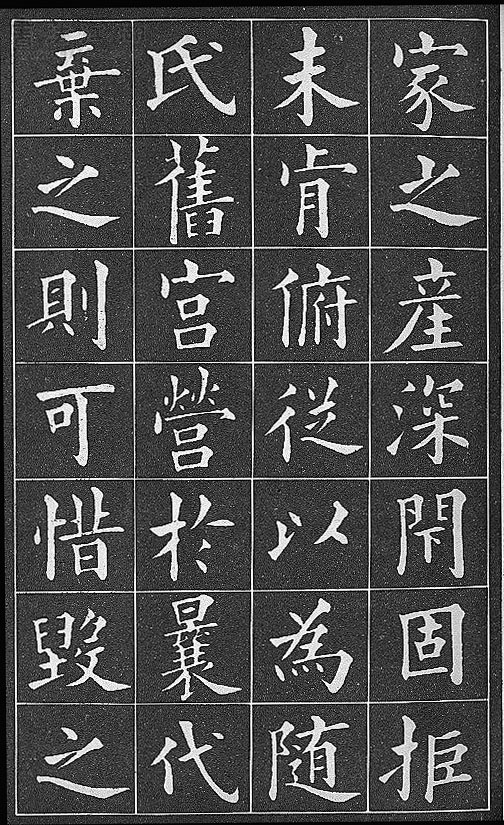 家之産深閇固拒
未肯俯従以為随
氏舊宮營於曩代
棄之則可惜毀之